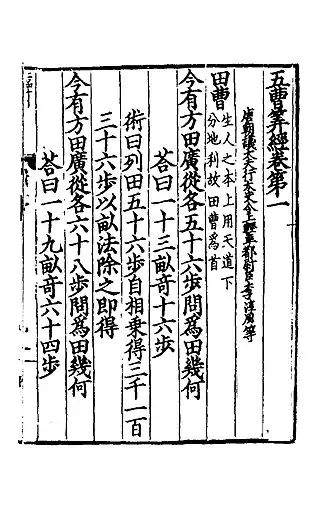 五曹筭經卷第一
唐朝議大夫行太史令上輕車都尉臣李淳風等
田曹
生人之本上用天道下
分地利故田曹爲首
今有方田廣從各五十六步問爲田幾何
荅曰一十三畝奇十六步
術曰列田五十六步自相乗得三千一百
三十六步以畝法除之即得
今有方田廣從各六十八步問爲田幾何
荅曰一十九畝奇六十四步